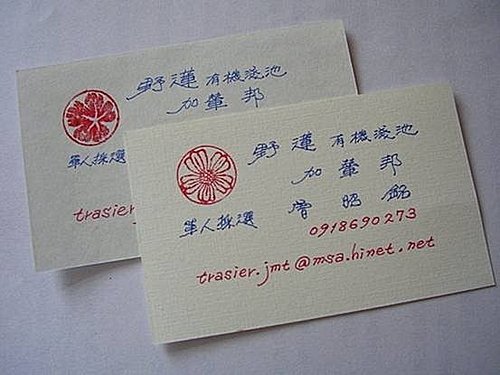 野蓮 有機濕池
加葷邦
單人採選
trasier.
野蓮 有機濕池
加葷邦
單人採選 曾昭銘
0918690273
trasier.jmt@msa.hinet.net